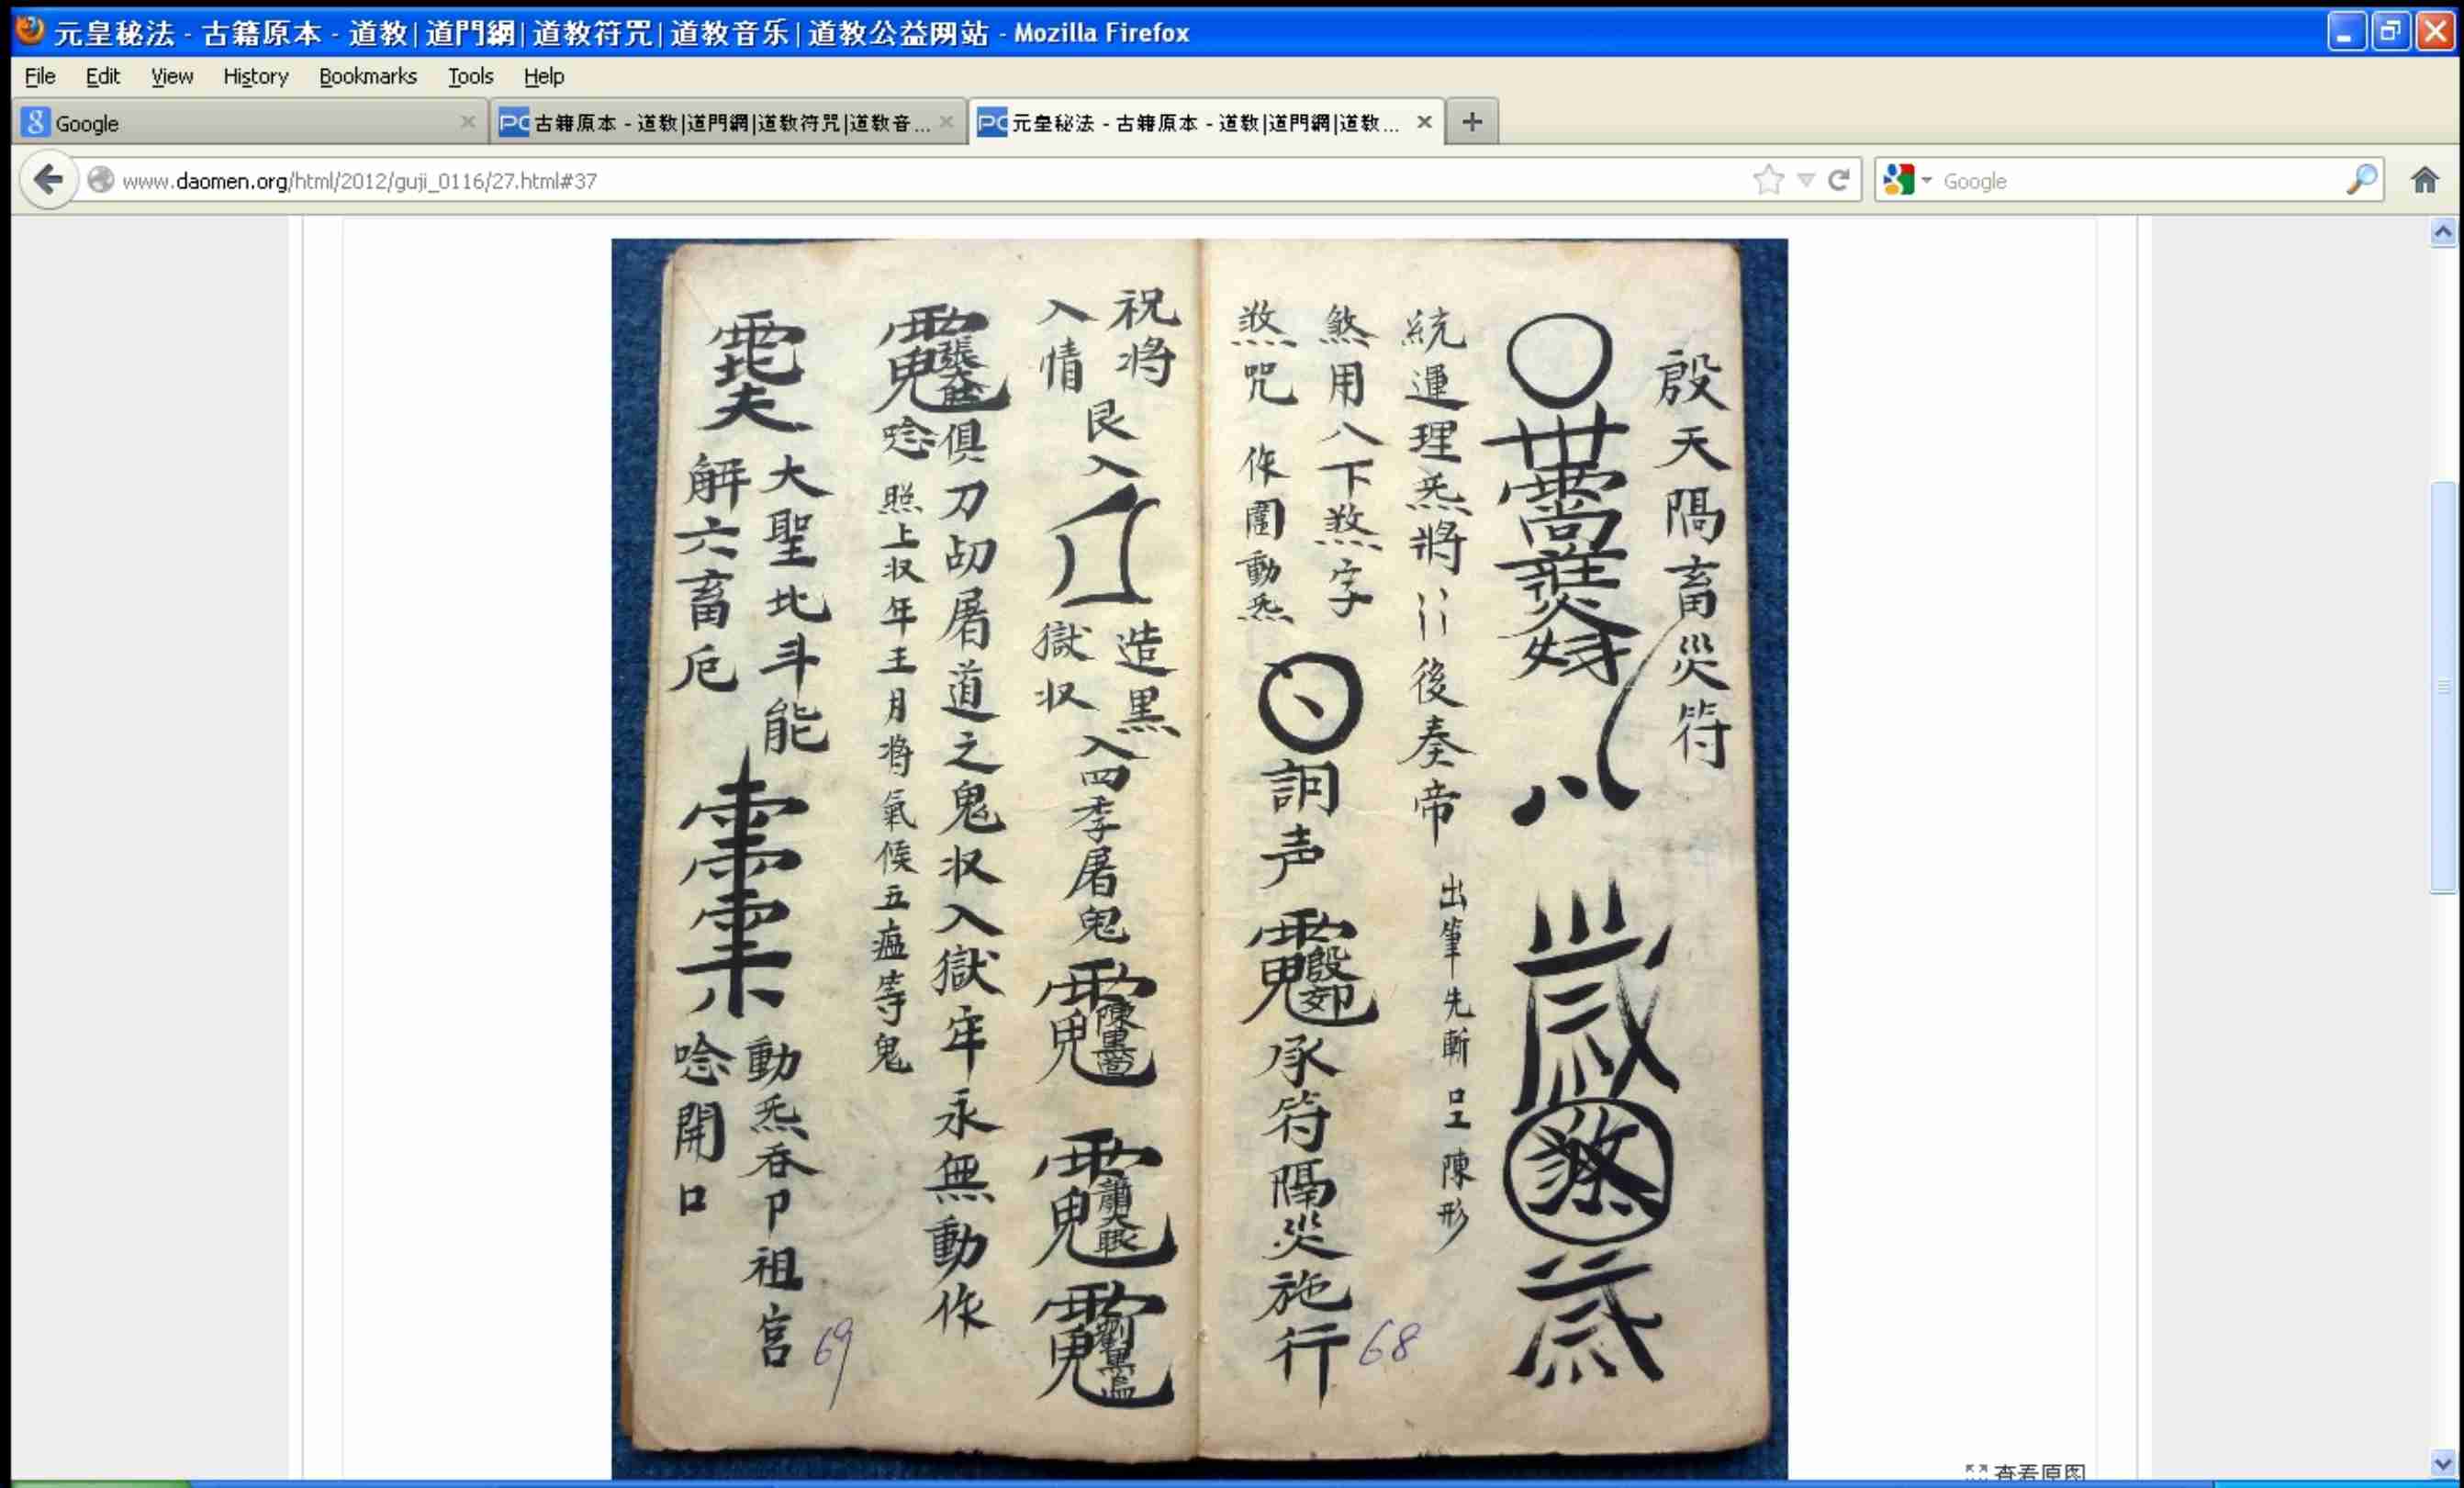 元皇秘法 - 古籍原本 - 道教|道門網|道教符咒|道教音乐|道教公益网站 - Mozilla Firefox
File Edit View History Bookmarks Tools Help
Google
古籍原本 - 道教|道門網|道教符咒|道教音...
元皇秘法 - 古籍原本 - 道教|道門網|道教...
www.daomen.org/html/2012/guji_0116/27.html#37
Google
殷天隔畜災符
統運理炁將 後奏帝
出筆先斬 陳形
煞用八下煞字
煞咒 作圈動炁
詞声
承符隔災施行
68
祝將
入情
艮入
造黑
獄収
入四季屠鬼
俱刀劰屠道之鬼収入獄牢永無動作
唸 照上収年王月將氣候五瘟等鬼
大聖北斗能
解六畜厄
動炁吞卩祖宮
唸開口
69
查看原图